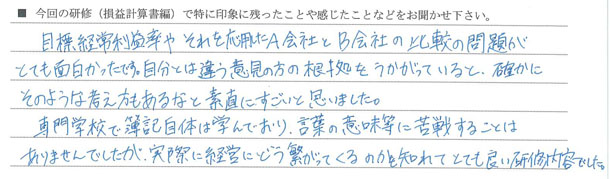 ■ 今回の研修（損益計算書編）で特に印象に残ったことや感じたことなどをお聞かせ下さい。
目標経常利益率や それを応用したA会社とB会社の比較の問題が
とても面白かったです。自分とは違う意見の方の根拠をうかがっていると、確かに
そのような考え方もあるなと素直にすごいと思いました。
専門学校で簿記自体は学んでおり、言葉の意味等に苦戦することは
ありませんでしたが、実際に経営にどう繋がってくるのかを知れてとても良い研修内容でした。